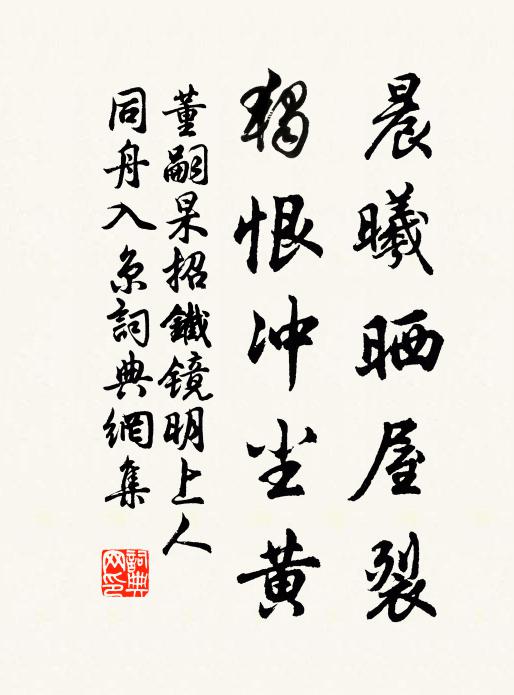 晨曦晒屋裂
獨恨冲尘黄
董嗣杲招鐵鏡明上人
同舟入京詞典網集
詞典网印